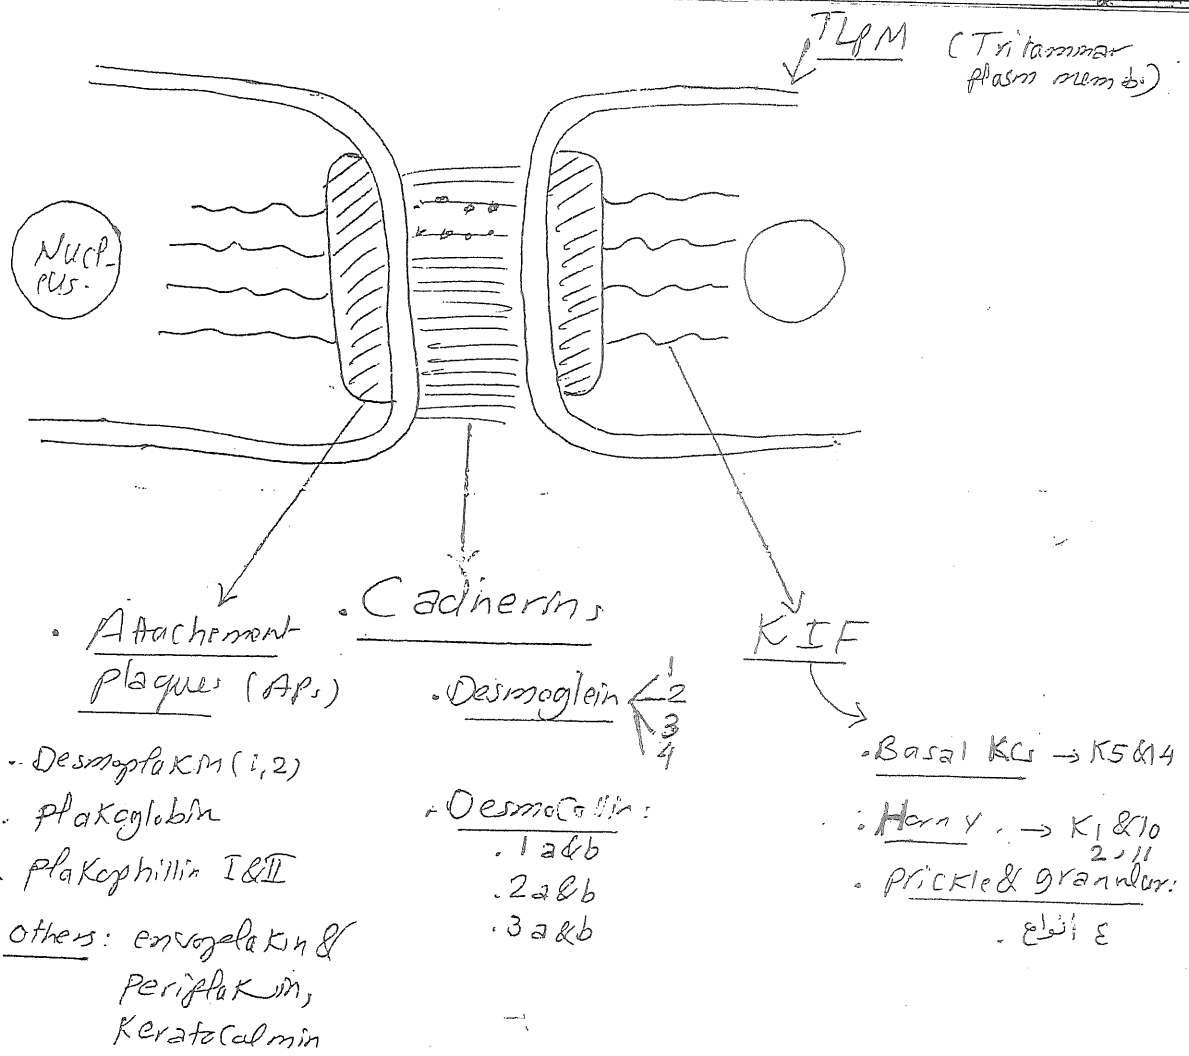 TLPM (Trilammar
plasm memb.)
Nucl-
eus.
. Attachement
plaques (APs)
. Desmoplakin (1,2)
. plakoglobin
. plakophillin I & II
others: envoplakin &
periplakin,
Keratocalmin
. Cadherins
. Desmoglein
1
2
3
4
. Desmocollin:
. 1 a & b
. 2 a & b
. 3 a & b
KIF
. Basal KCs → K5 & 14
. Horny . → K1 & 10
2, 11
. prickle & grannular:
. ٤ أنواع